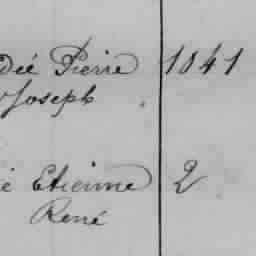 dée Pierre 1841
Joseph
é Etienne 2
René